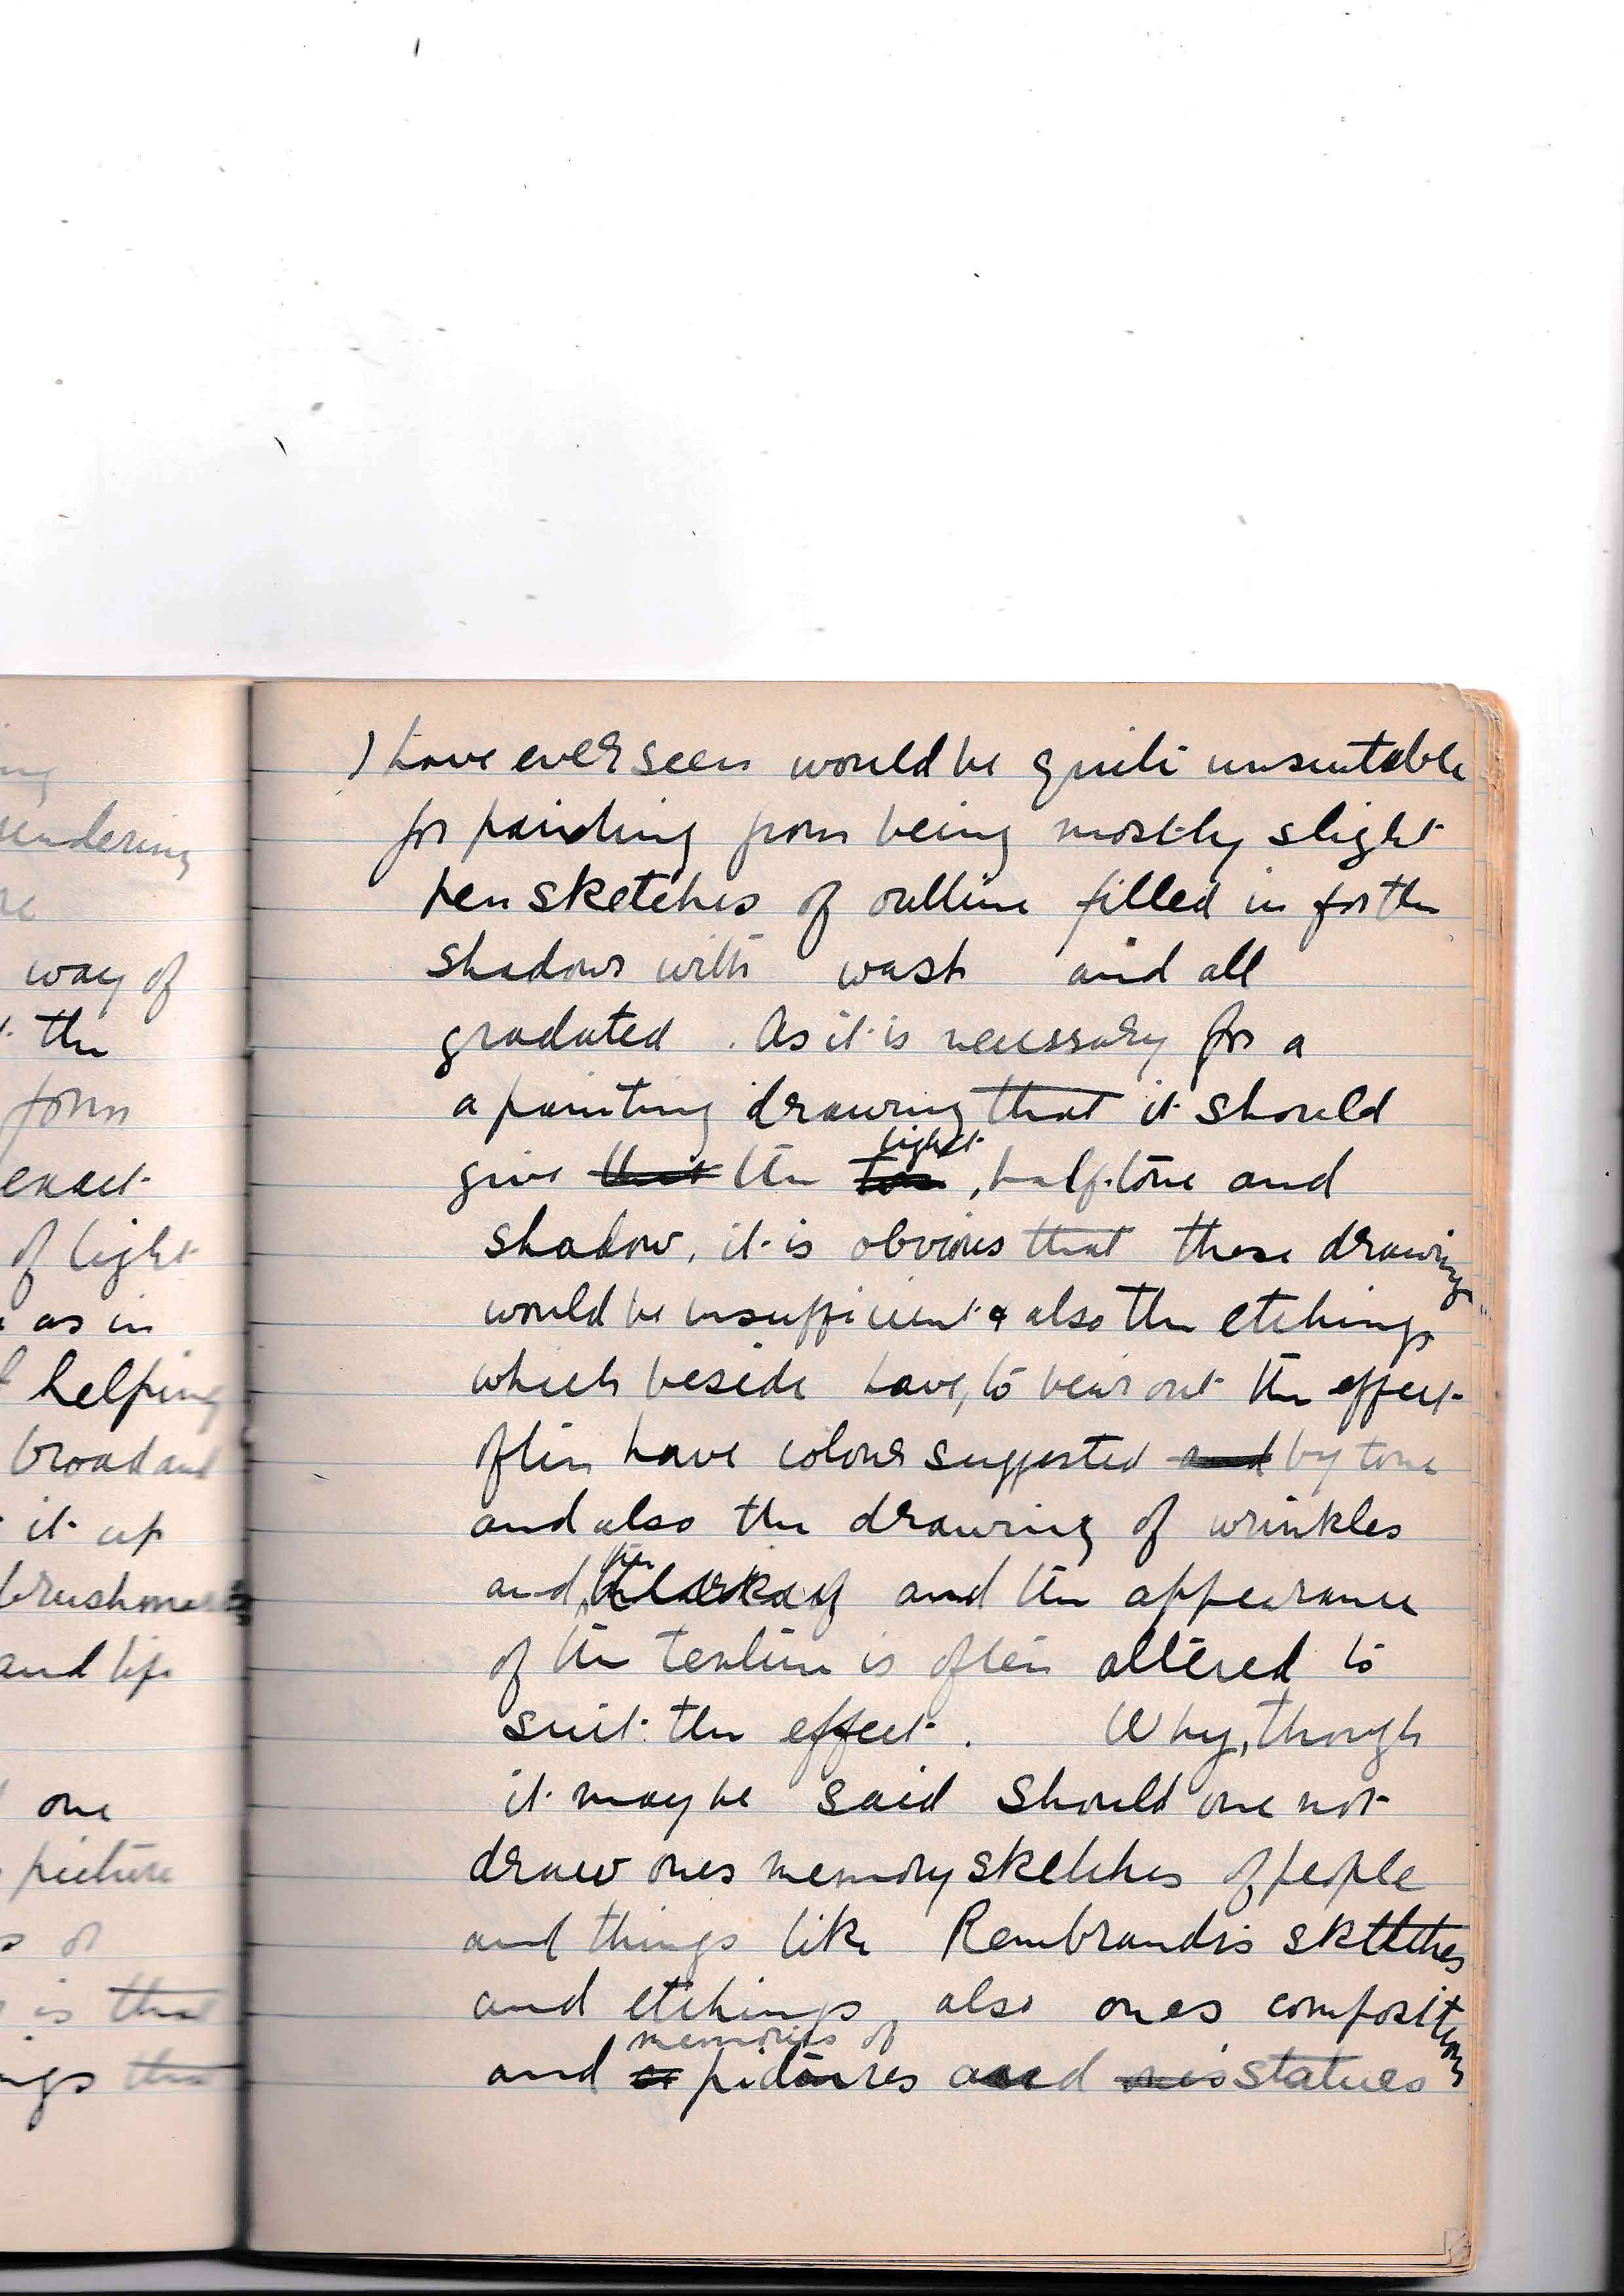 ng
rendering
re
way of
the
form
exact
of light
as in
helping
broad and
it up
brushmarks
and lip
one
picture
s or
is that
ngs that
I have ever seen would be quite unsuitable
for painting from being mostly slight
pen sketches of outline filled in for the
shadows with wash and all
graduated. As it is necessary for a
a painting drawing that it should
give that the light, half-tone and
shadow, it is obvious that these drawings
would be insufficient & also the etchings
which beside have, to bear out the effect
often have colour suggested and by tone
and also the drawing of wrinkles
and the and the appearance
of the texture is often altered to
suit the effect. Why, though
it may be said should one not
draw ones memory sketches of people
and things like Rembrandts sketches
and etchings also ones compositions
and memories of pictures and ones statues